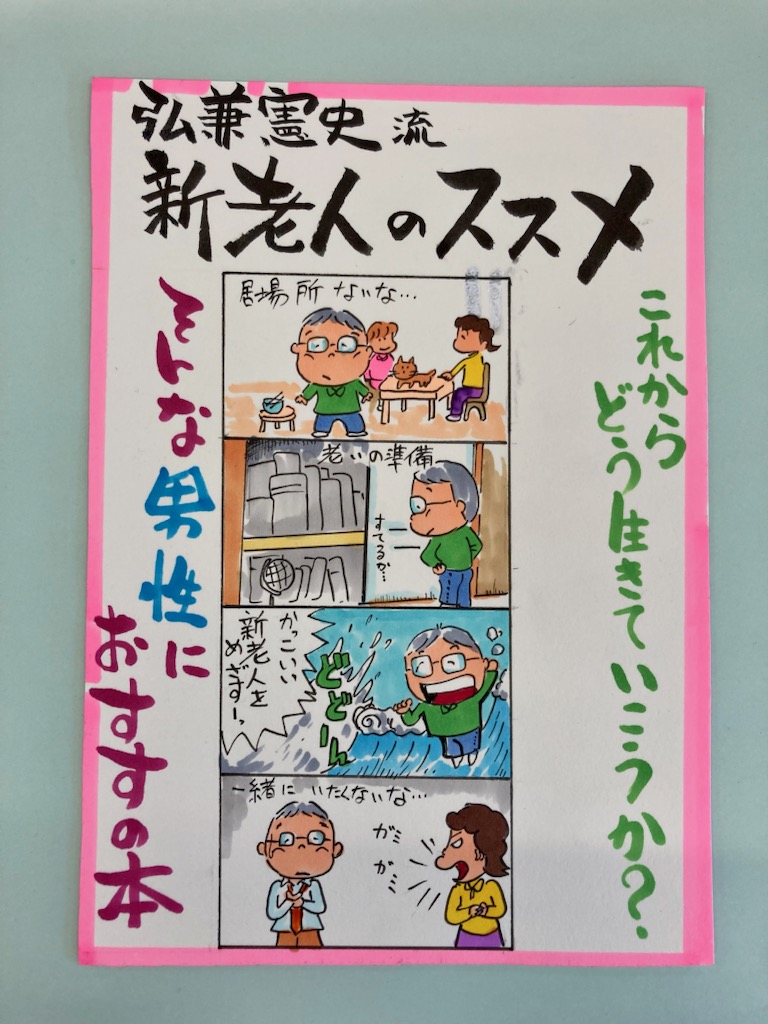 弘兼憲史 流
新老人のススメ
これから
どう生きていこうか?
居場所 ないな…
老いの準備
すてるか…
どどーん
かっこいい
新老人を
めざすーっ
一緒に いたくないな…
ガミ
ガミ
そんな男性に
おすすめの本